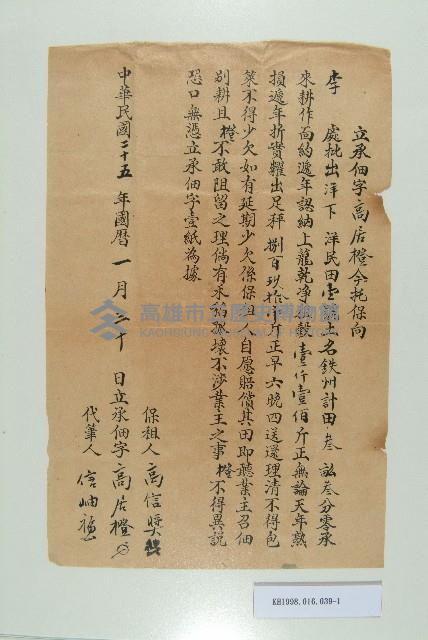 立承佃字高居橙今托保向
李 處批出洋下 洋民田壹 土名鉄州計田叁 畝叁分零承
來耕作面約遞年認納上籠乾净 穀壹仟壹佰斤正無論天年熟
損遞年折實糶出足秤捌百玖拾 斤正早六晚四送還理清不得包
菜不得少欠如有延期少欠係保 人自愿賠償其田即聽業主召佃
别耕且橙不敢阻留之理倘有禾 壞不涉業主之事橙不得異説
恐口無憑立承佃字壹紙為據
保租人 高信獎
中華民國二十五年國曆一月二十日立承佃字高居橙
代筆人 信
高雄市立歷史博物館
KAOHSIUNG MUSEUM OF HISTORY
KH1998.016.039-1